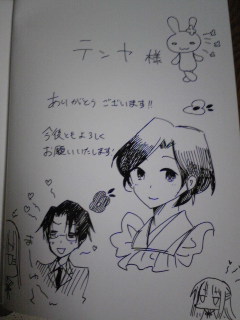 テンヤ様
ありがとうございます!!
今後ともよろしく
お願いいたします!